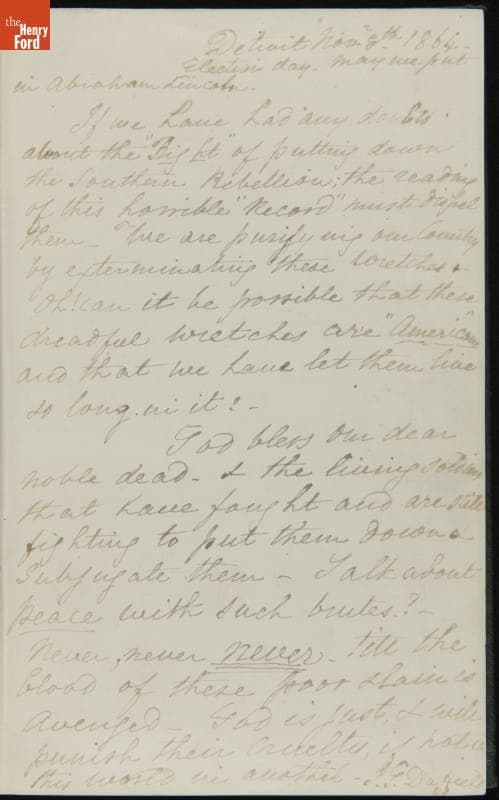 the
Henry
Ford
Detroit Nov. 8th 1864.
Election day. may we put
in Abraham Lincoln.
If we have had any doubts
about the "Right" of putting down
the Southern Rebellion, the reading
of this horrible "Record" must dispel
them - We are purifying our country
by exterminating these wretches &
Oh! can it be possible that these
dreadful wretches are "American"
and that we have let them live
so long in it? -
God bless our dear
noble dead - & the living soldiers
that have fought and are still
fighting to put them down &
Subjugate them - Talk about
peace with such brutes? -
Never, never never - till the
blood of these poor slain is
avenged - God is just, & will
punish their cruelty, if not in
this world in another - Duffield